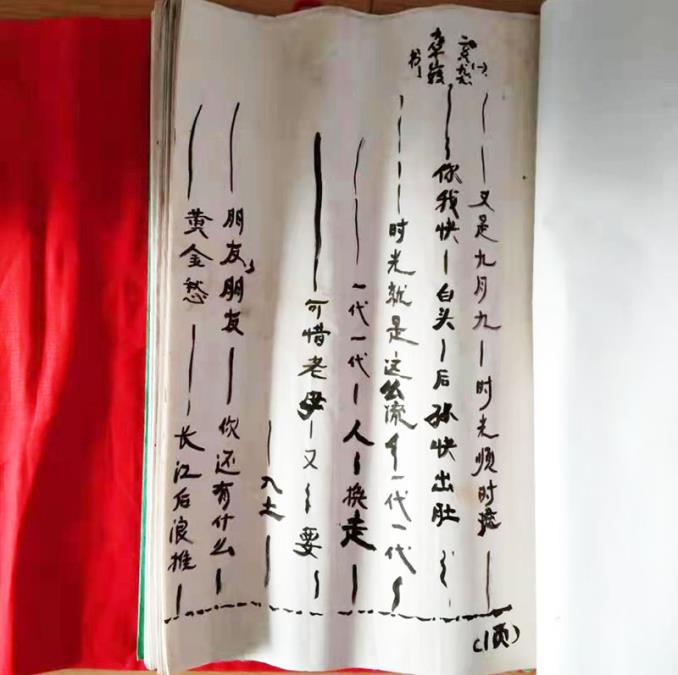 ——又是九月九—时光顺时
——你我快—白头—后孙快出肚—
———时光就是这么流——一代一代—
——一代一代—人—换走—
——可惜老母—又—要—
—入土—
——朋友、朋友—你还有什么—
——黄金愁——长江后浪推—
(1页)